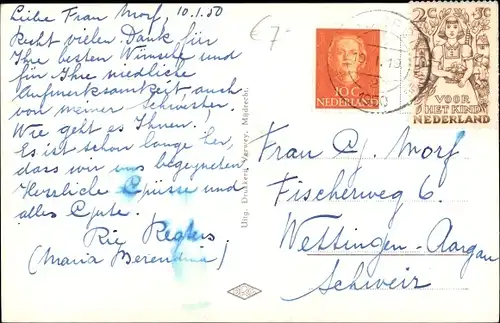 Liebe Frau Morf, 10.1.50
Recht vielen Dank für
Ihre besten Wünsche und
für Ihre niedliche
Aufmerksamkeit, auch
von meiner Schwester.
Wie geht es Ihnen!
Es ist schon lange her,
dass wir uns begegneten.
Herzliche Grüsse und
alles Gute.
Rie
(Maria Berendina)
€7-
Uitg. Drukkerij Verwey, Mijdrecht.
10 C
NEDERLAND
2 C
VOOR
HET KIND
NEDERLAND
Frau C. Morf
Fischerweg 6.
Wettingen-Aargau
Schweiz